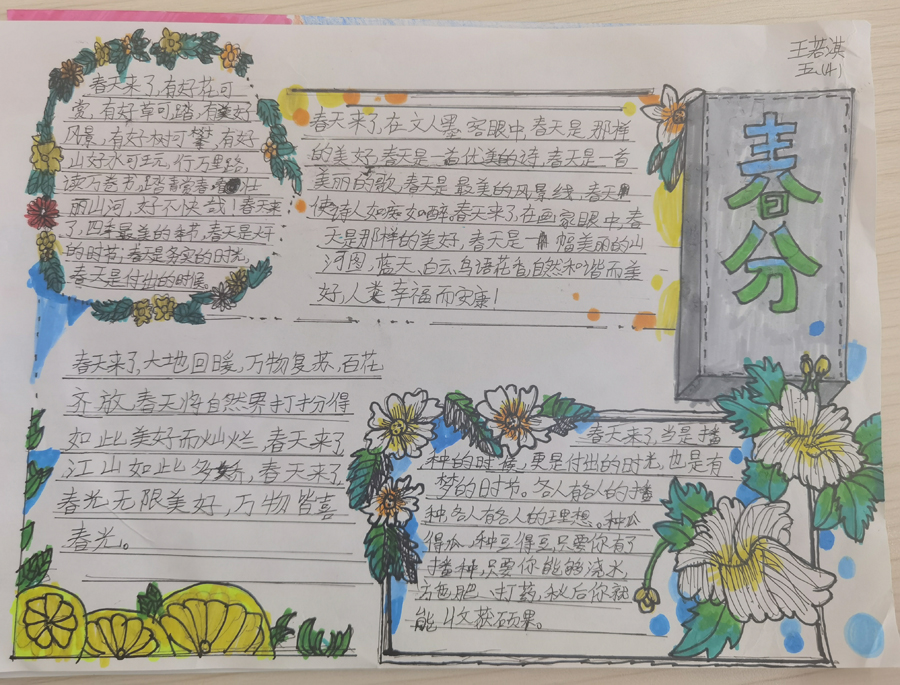 王若淇
五.(4)
春分
春天来了,有好花可
赏,有好草可踏,有美好
风景,有好树可攀,有好
山好水可玩,行万里路,
读万卷书,踏青春壮
丽山河,好不快哉!春天来
了,四季最美的季节,春天是大干
的时节;春天是务实的时光,
春天是付出的时候。
春天来了,在文人墨客眼中,春天是那样
的美好,春天是一首优美的诗,春天是一首
美丽的歌,春天是最美的风景线,春天
使诗人如痴如醉。春天来了,在画家眼中,春
天是那样的美好,春天是一幅美丽的山
河图,蓝天、白云、鸟语花香,自然和谐而美
好,人类幸福而安康!
春天来了,大地回暖,万物复苏,百花
齐放,春天将自然界打扮得
如此美好而灿烂,春天来了,
江山如此多娇,春天来了,
春光无限美好,万物皆喜
春光。
春天来了,当是播
种的时候,更是付出的时光,也是有
梦的时节。各人有各人的播
种,各人有各人的理想。种瓜
得瓜,种豆得豆,只要你有了
播种,只要你能够浇水,
施肥、打药,秋后你就
能收获硕果。